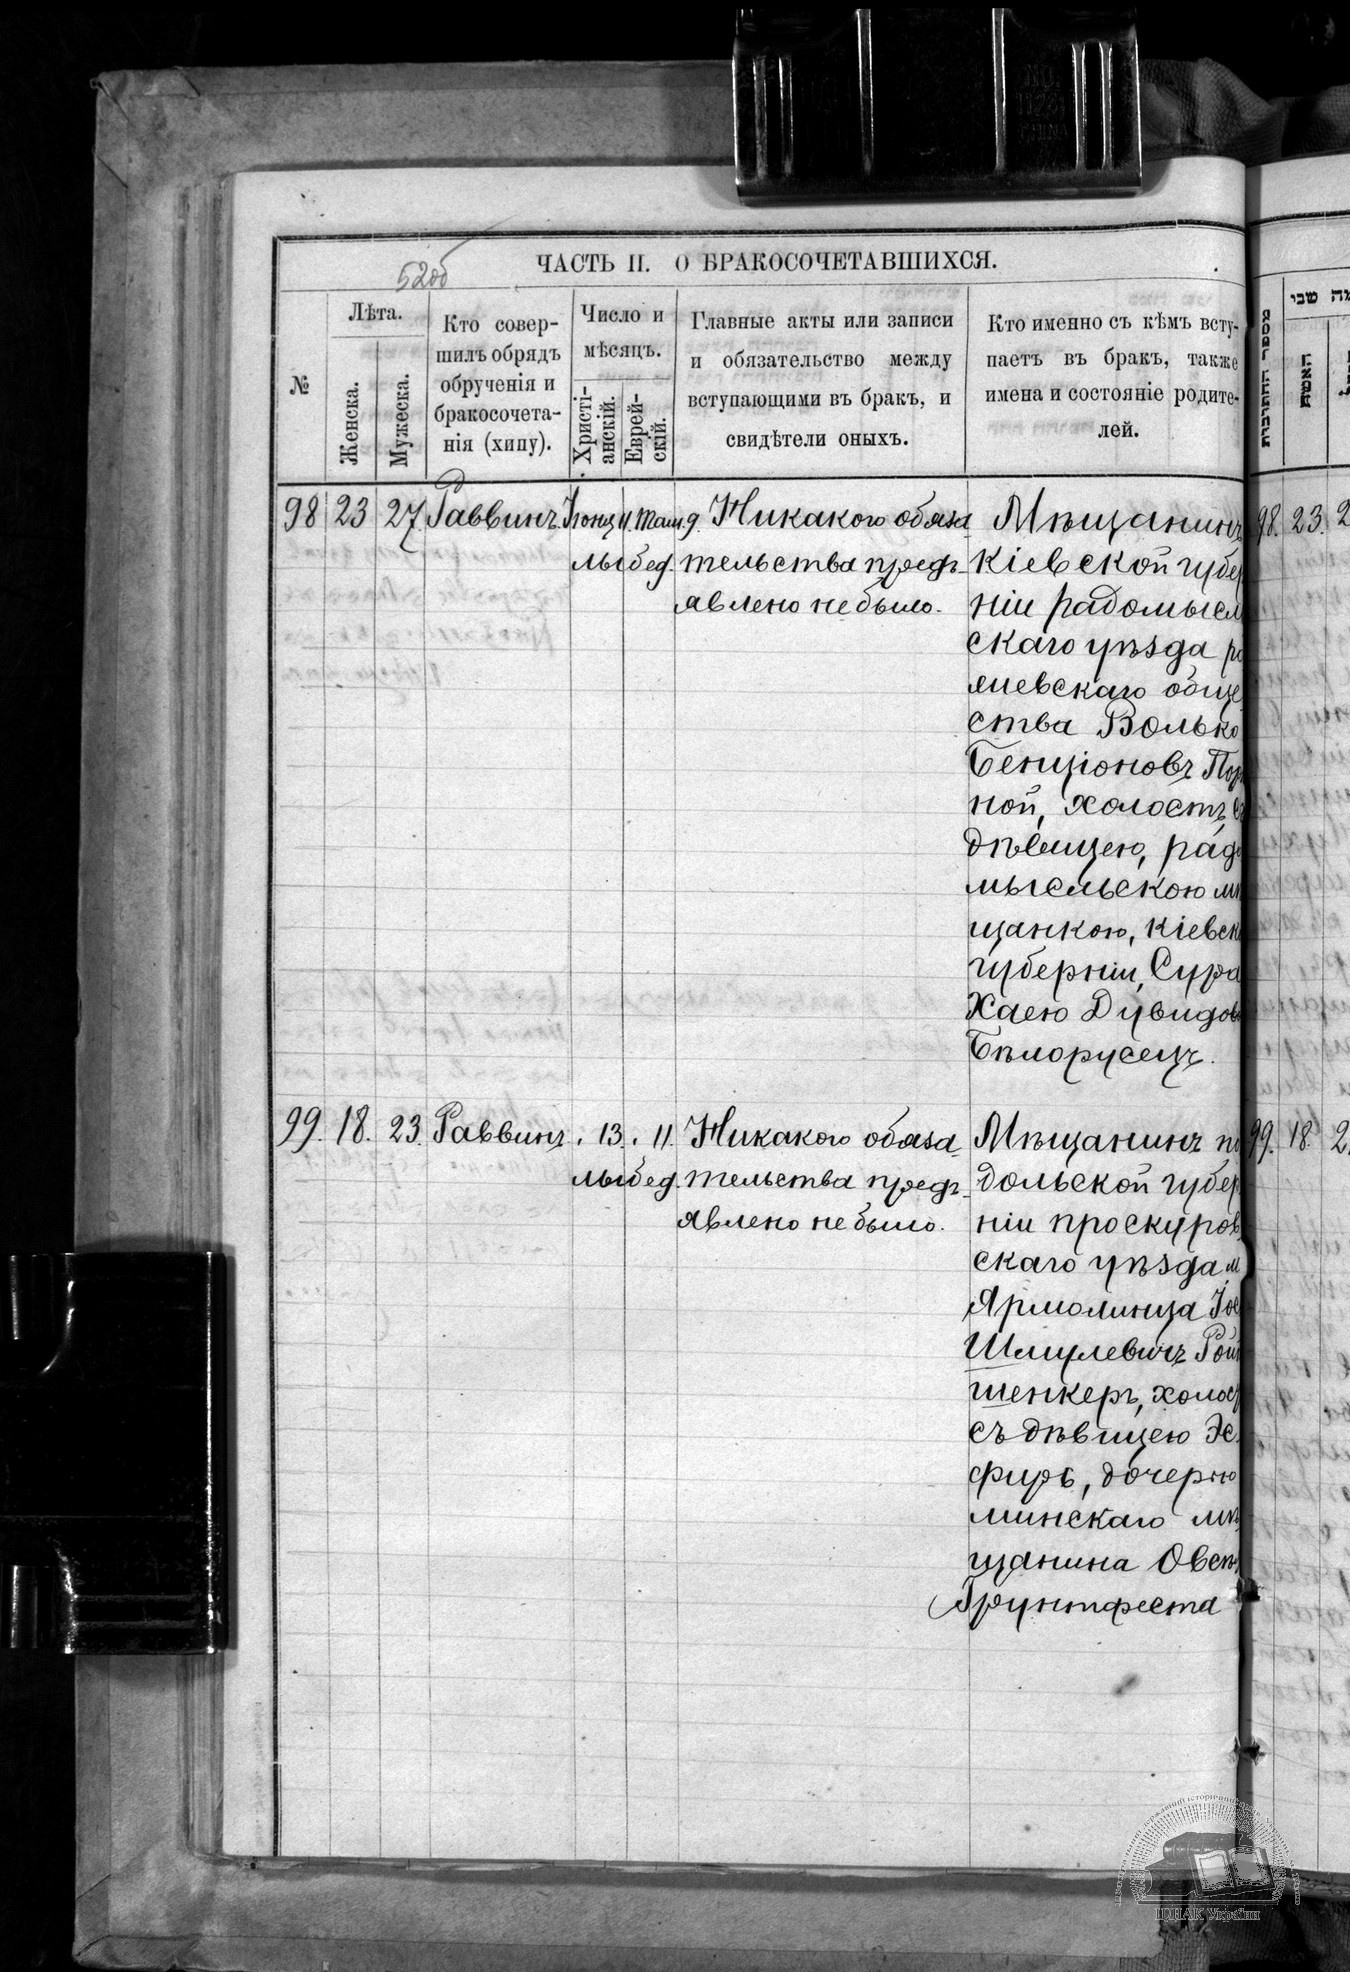 52об
ЧАСТЬ II. О БРАКОСОЧЕТАВШИХСЯ.
№
Лѣта.
Женска.
Мужеска.
Кто совер-
шилъ обрядъ
обрученія и
бракосочета-
нія (хипу).
Число и
мѣсяцъ.
Христі-
анскій.
Еврей-
скій.
Главные акты или записи
и обязательство между
вступающими въ бракъ, и
свидѣтели оныхъ.
Кто именно съ кѣмъ всту-
паетъ въ бракъ, также
имена и состояніе родите-
лей.
98 23 27 Раввинъ
Никакого обяза
тельства предъ-
явлено не было.
Мѣщанинъ
Кіевской губер
ніи радомысл
скаго уѣзда
общес
ства Волько
Бенціоновъ
ной, холостъ, съ
дѣвицею, радо
мысльскою мѣ
щанкою, кіевск
губерніи, Сура
Хаею Дувидов
Бѣлорусецъ.
99. 18. 23. Раввинъ 13. 11.
Никакого обяза-
тельства предъ-
явлено не было.
Мѣщанинъ по
дольской губер
ніи проскуров
скаго уѣзда м
Ярмолинца Іос
Шмулевичъ Рой
шенкеръ, холос
съ дѣвицею Эс
фирь, дочерью
минскаго мѣ
щанина Овсѣ
Грунтфеста
98. 23.
99. 18.
שבי
האשה
ЦДІАК України